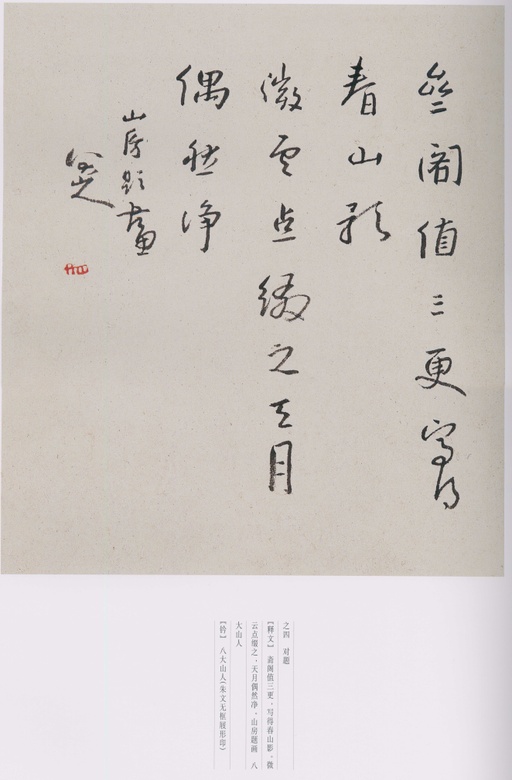 斋阁值三更写得
春山影
微云点缀之天月
偶然净
山房题画
八大山人
之四 对题
【释文】 斋阁值三更，写得春山影。微
云点缀之，天月偶然净。山房题画 八
大山人
【钤】 八大山人(朱文无框屐形印)